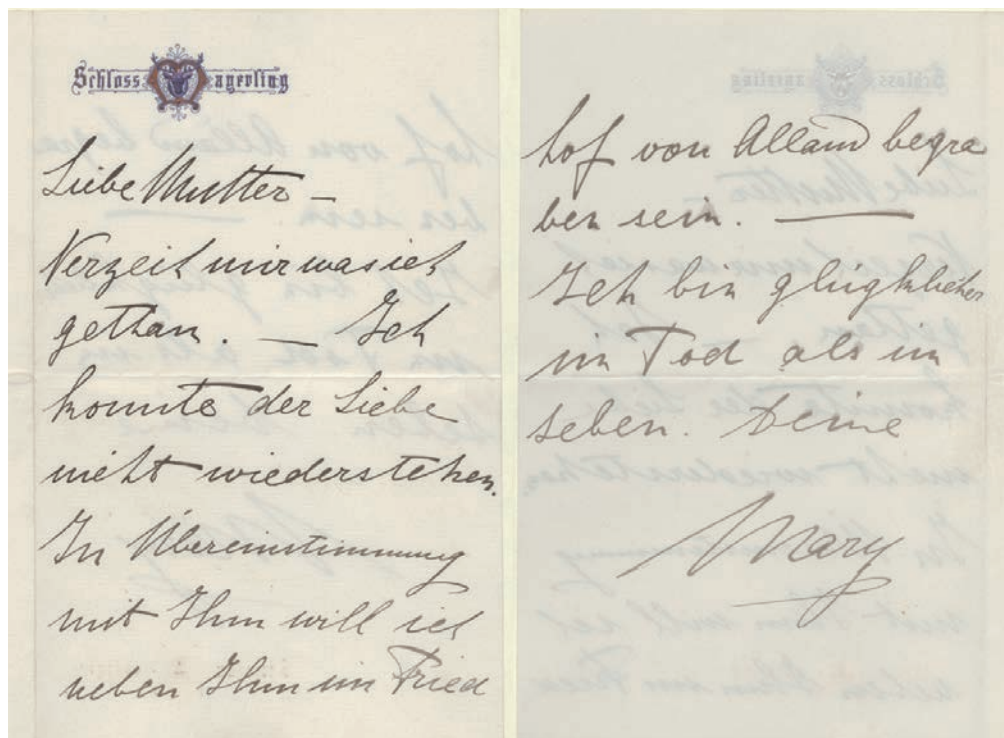 Schloss Mayerling
Liebe Mutter –
Verzeih mir was ich
gethan. — Ich
konnte der Liebe
nicht wiederstehen.
In Übereinstimmung
mit Ihm will ich
neben Ihm im Fried
hof von Alland begra
ben sein. ———
Ich bin glügklicher
im Tod als im
Leben. Deine
Mary